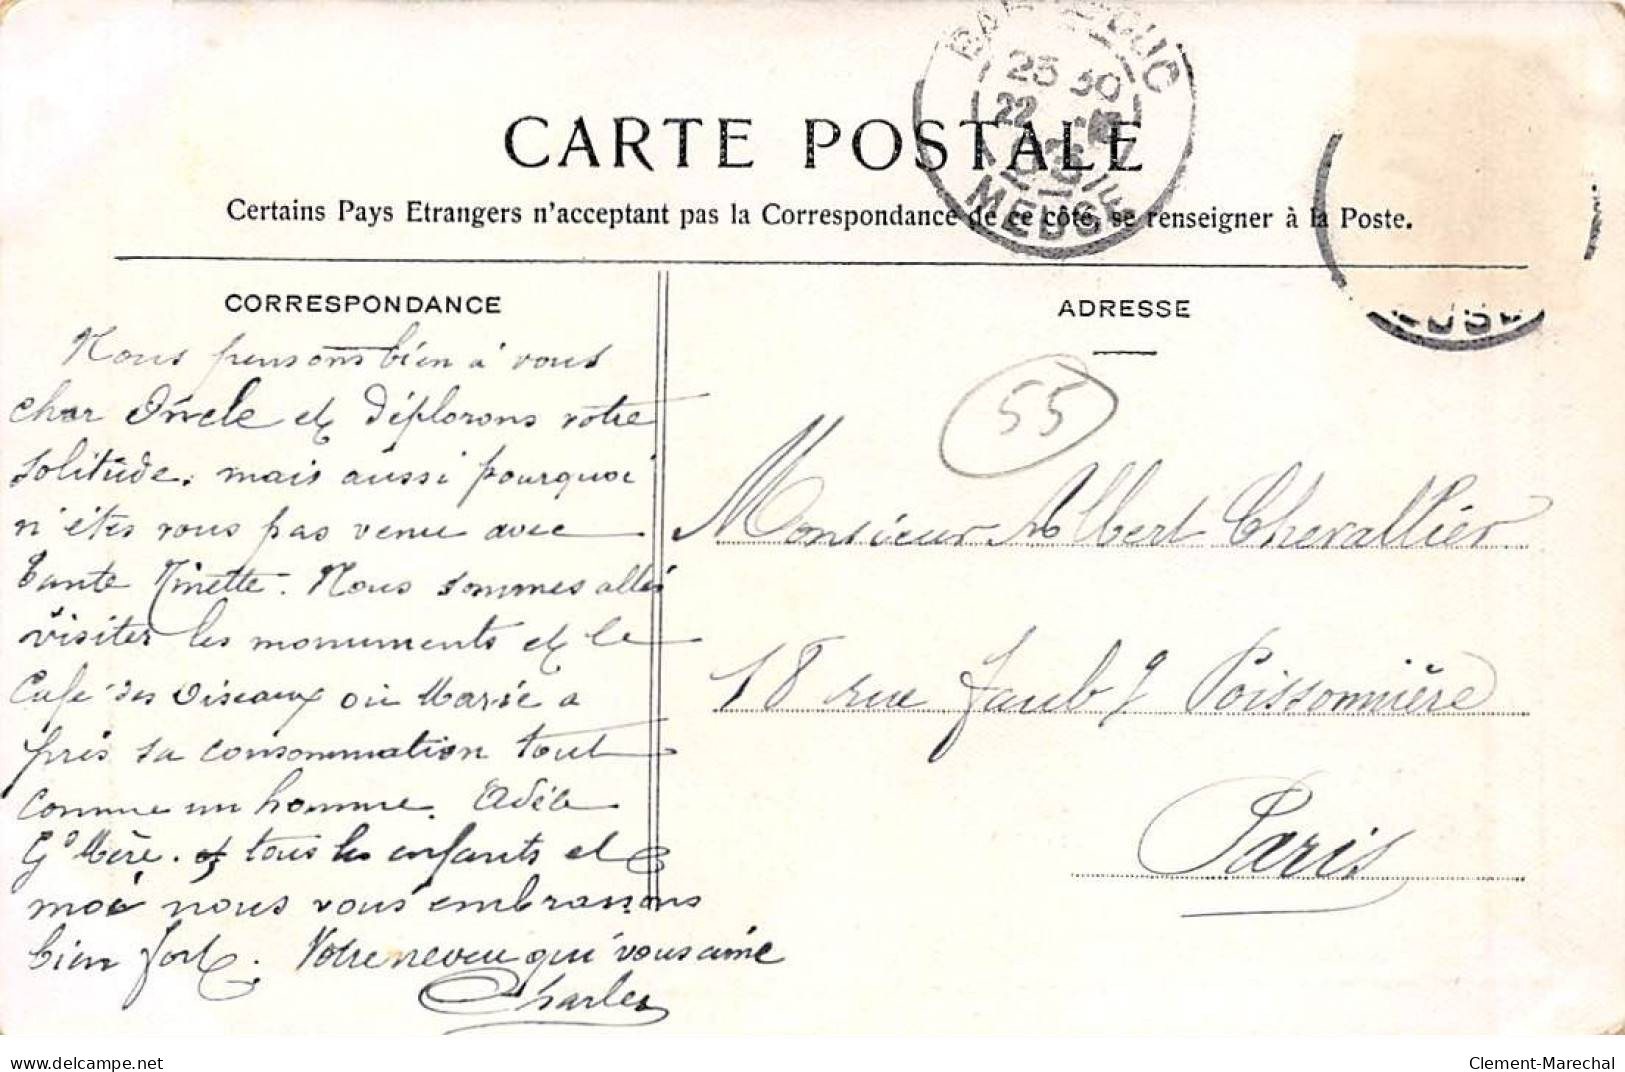 CARTE POSTALE
Certains Pays Etrangers n'acceptant pas la Correspondance de ce côté, se renseigner à la Poste.
BAR-LE-DUC
23 30
22
MEUSE
EUSE
CORRESPONDANCE
Nous pensons bien à vous
cher Oncle et déplorons votre
solitude. mais aussi pourquoi
n'êtes vous pas venu avec
tante Ninette. Nous sommes allés
visiter les monuments et le
Café des Oiseaux où Marie a
pris sa consommation tout
comme un homme. Adèle
Gd Mère. et tous les enfants et
moi nous vous embrassons
bien fort. Votre neveu qui vous aime
Charles
ADRESSE
55
Monsieur Albert Chevallier
18 rue Faubg Poissonnière
Paris
delcampe.net
Clement-Marechal